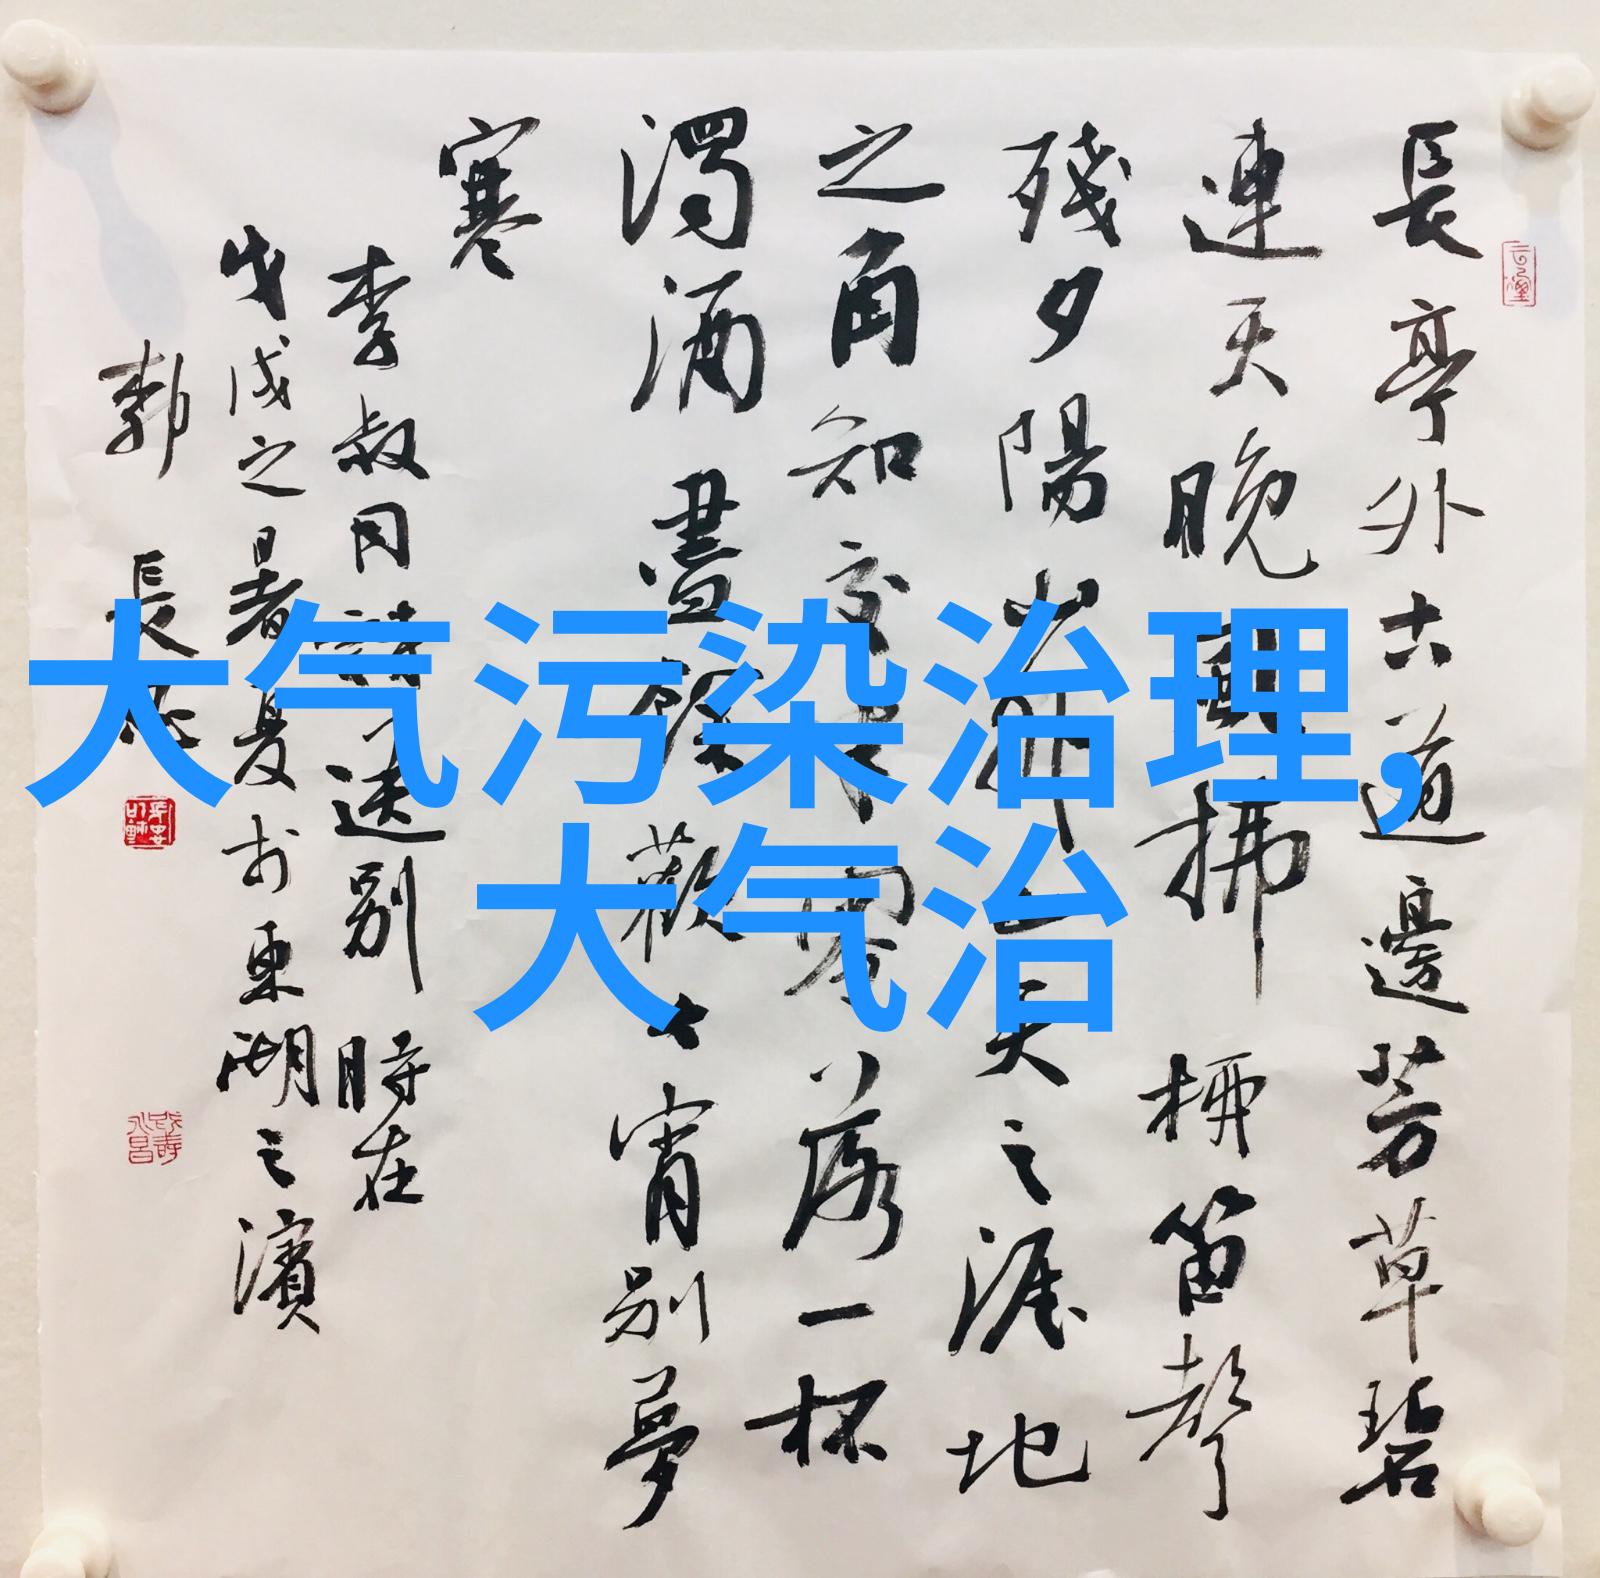 大气污染治理,
大气治
長亭外古道邊芳草碧
連天晚風拂柳笛聲
殘夕陽山外山天之涯地
之角知交半零落一杯
濁酒盡餘歡今宵別夢
寒
李叔同詩送別 時在
戊戌之暑夏於東湖之濱
郭 長